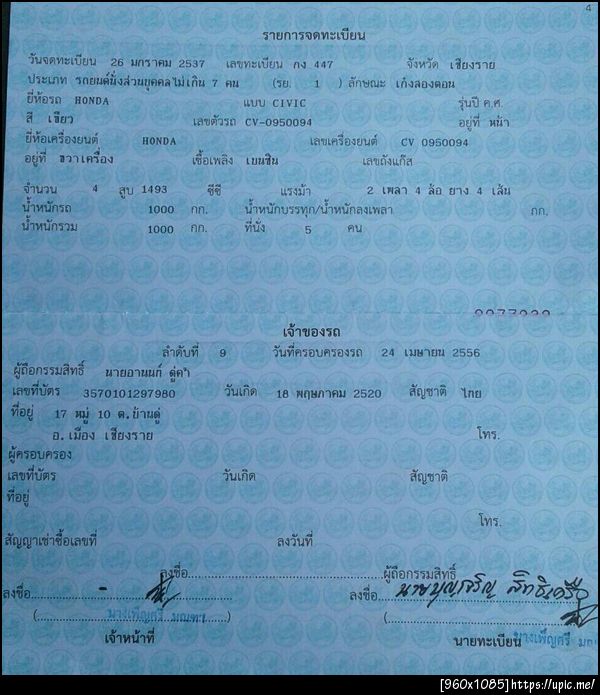 4
รายการจดทะเบียน
วันจดทะเบียน 26 มกราคม 2537 เลขทะเบียน กง 447 จังหวัด เชียงราย
ประเภท รถยนต์นั่งส่วนบุคคลไม่เกิน 7 คน (รย. 1 ) ลักษณะ เก๋งสองตอน
ยี่ห้อรถ HONDA แบบ CIVIC รุ่นปี ค.ศ.
สี เขียว เลขตัวรถ CV-0950094 อยู่ที่ หน้า
ยี่ห้อเครื่องยนต์ HONDA เลขเครื่องยนต์ CV 0950094
อยู่ที่ ขวาเครื่อง เชื้อเพลิง เบนซิน เลขถังแก๊ส
จำนวน 4 สูบ 1493 ซีซี แรงม้า 2 เพลา 4 ล้อ ยาง 4 เส้น
น้ำหนักรถ 1000 กก. น้ำหนักบรรทุก/น้ำหนักลงเพลา กก.
น้ำหนักรวม 1000 กก. ที่นั่ง 5 คน
เจ้าของรถ
ลำดับที่ 9 วันที่ครอบครองรถ 24 เมษายน 2556
ผู้ถือกรรมสิทธิ์ นายอานนท์
เลขที่บัตร 3570101297980 วันเกิด 18 พฤษภาคม 2520 สัญชาติ ไทย
ที่อยู่ 17 หมู่ 10 ต.บ้านดู่
อ.เมือง เชียงราย โทร.
ผู้ครอบครอง
เลขที่บัตร วันเกิด สัญชาติ
ที่อยู่
โทร.
สัญญาเช่าซื้อเลขที่ ลงวันที่
ลงชื่อ ผู้ถือกรรมสิทธิ์
ลงชื่อ - ลงชื่อ นายบุญเจริญ
(นางเพ็ญศรี มณฑา)
เจ้าหน้าที่ นายทะเบียน นางเพ็ญศรี
[960x1085]https://upic.me/